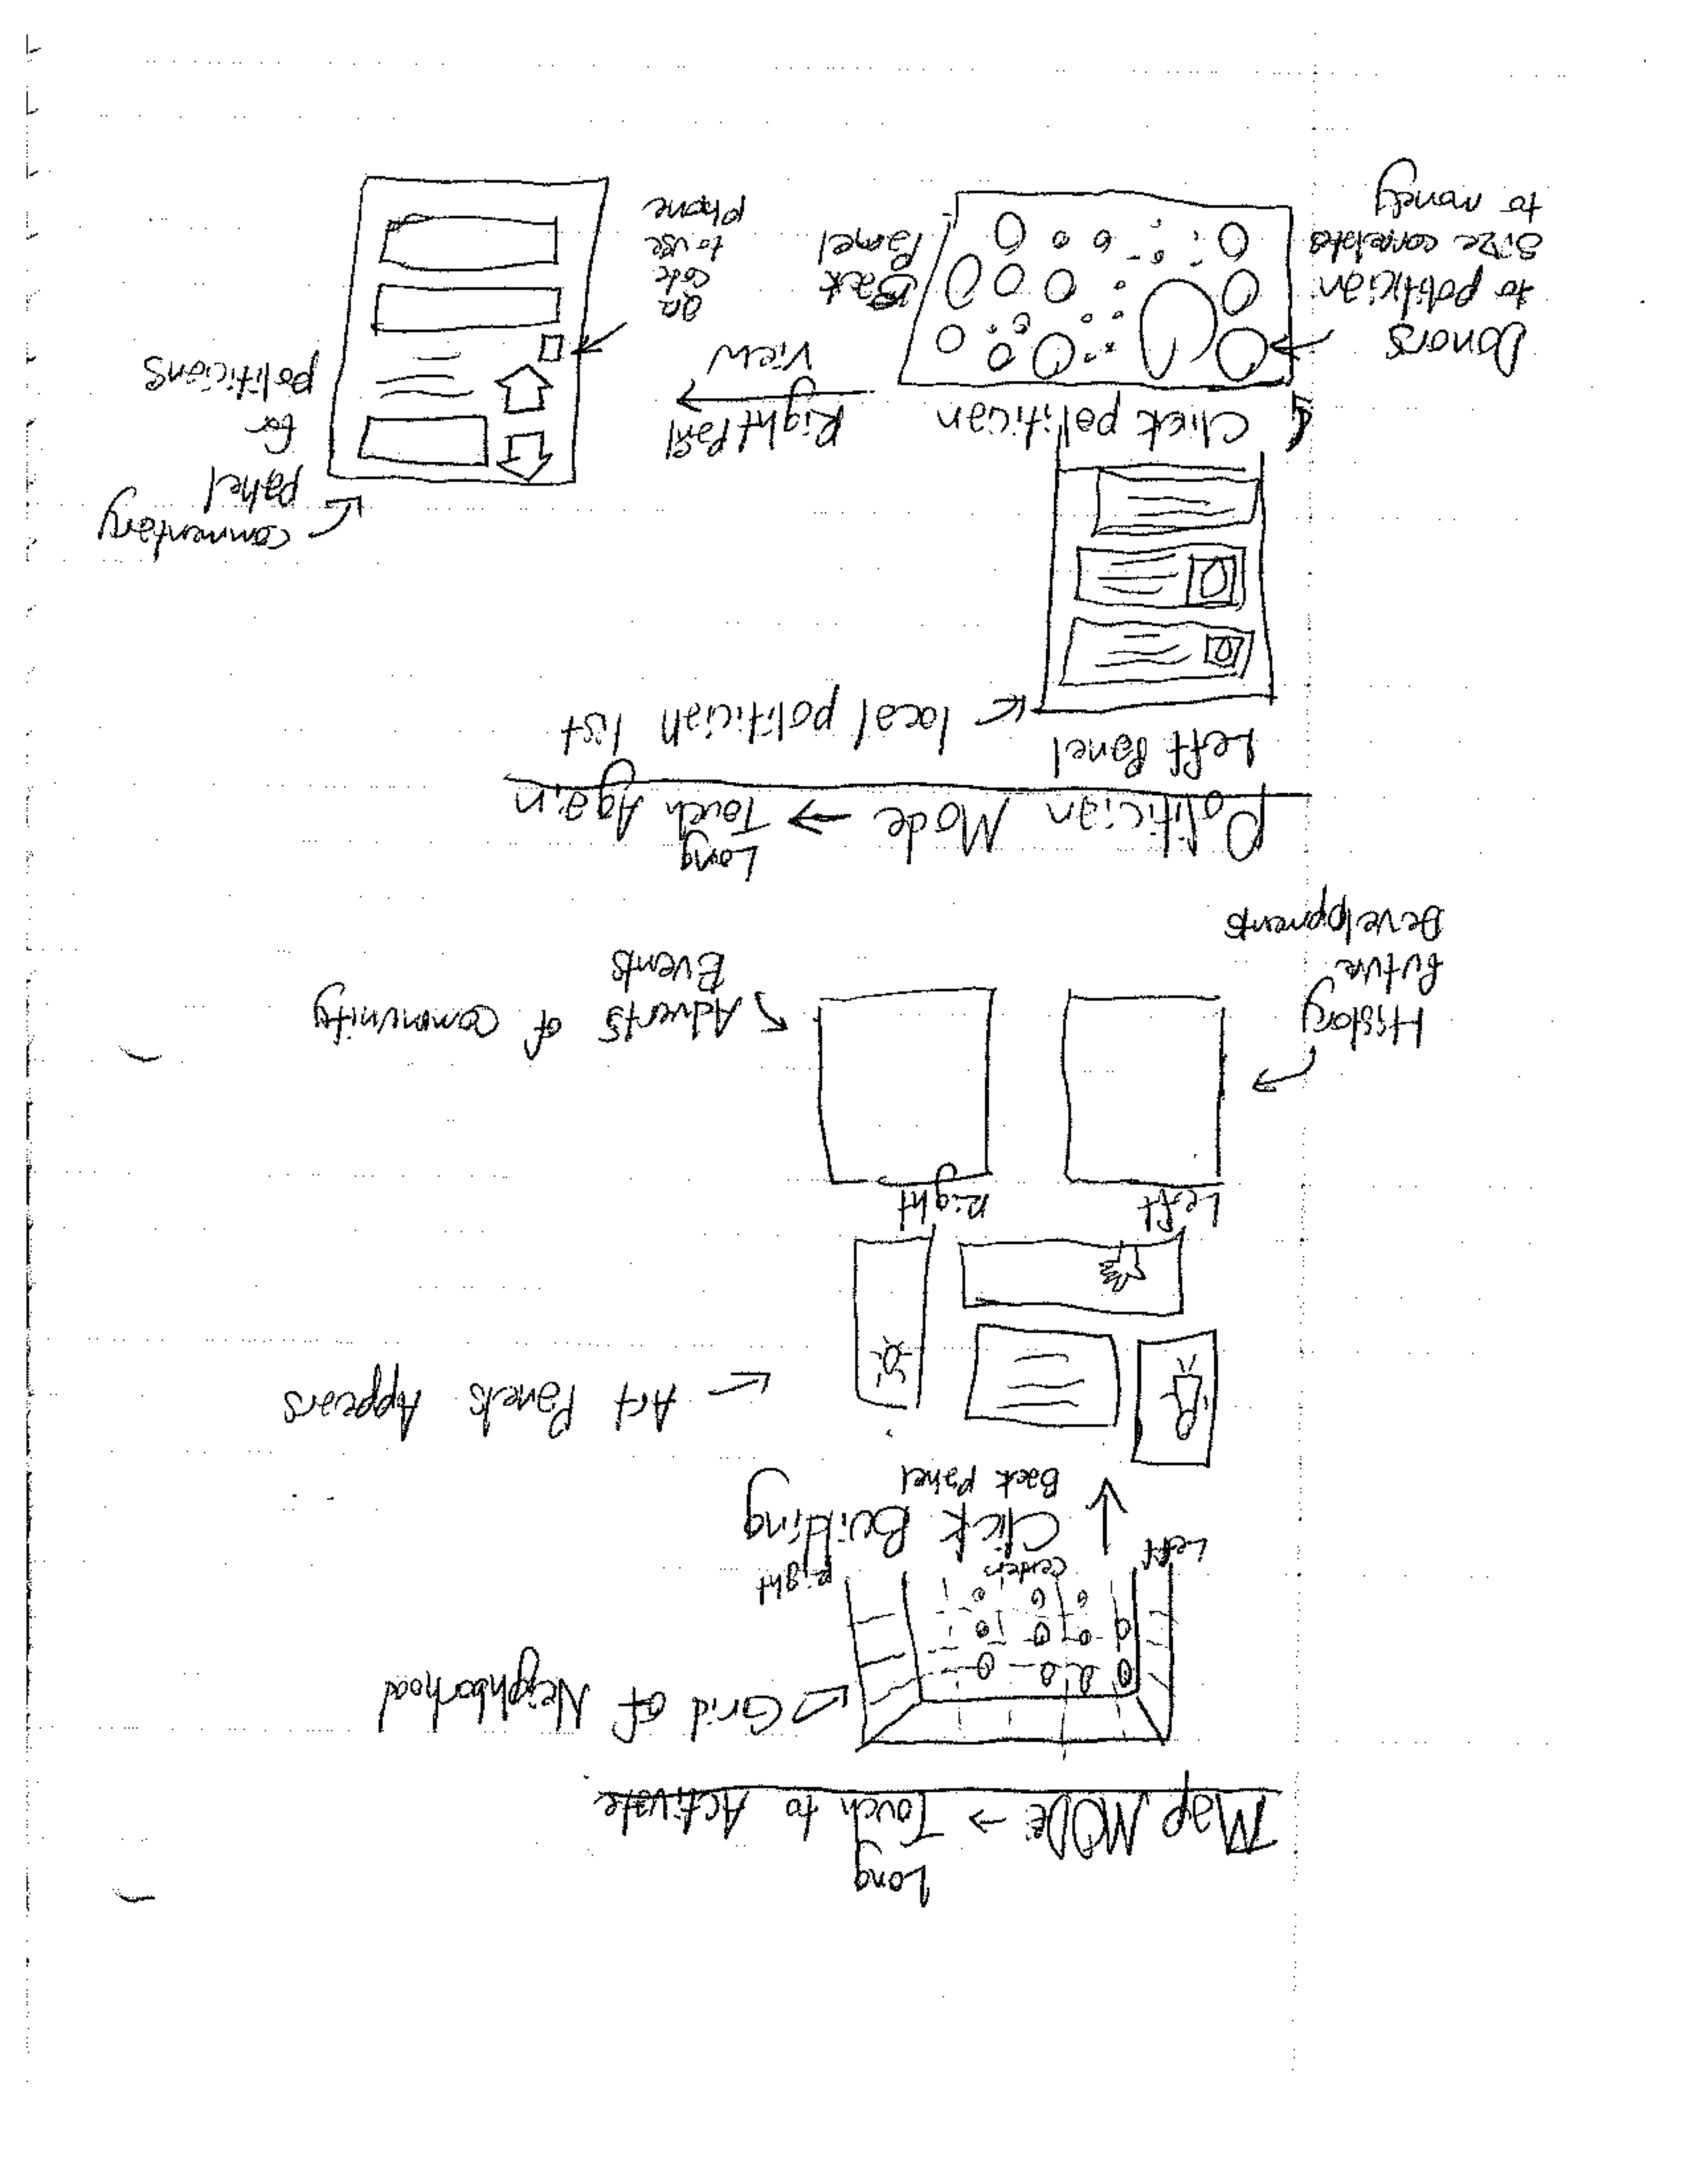 Long
Map MODE → Touch to Activate
Grid of Neighborhood
Left
Center
Right
Click Building
Back Panel
Art Panels Appears
Left
Right
History
Future
Developments
Adverts of Community
Events
Long
Politician Mode → Touch Again
Left Panel
local politician list
Click politician
Donors
to politician
Size correlate
to money
Back
Panel
Right Panel
View
QR
code
to use
phone
Commentary
panel
for
politicians